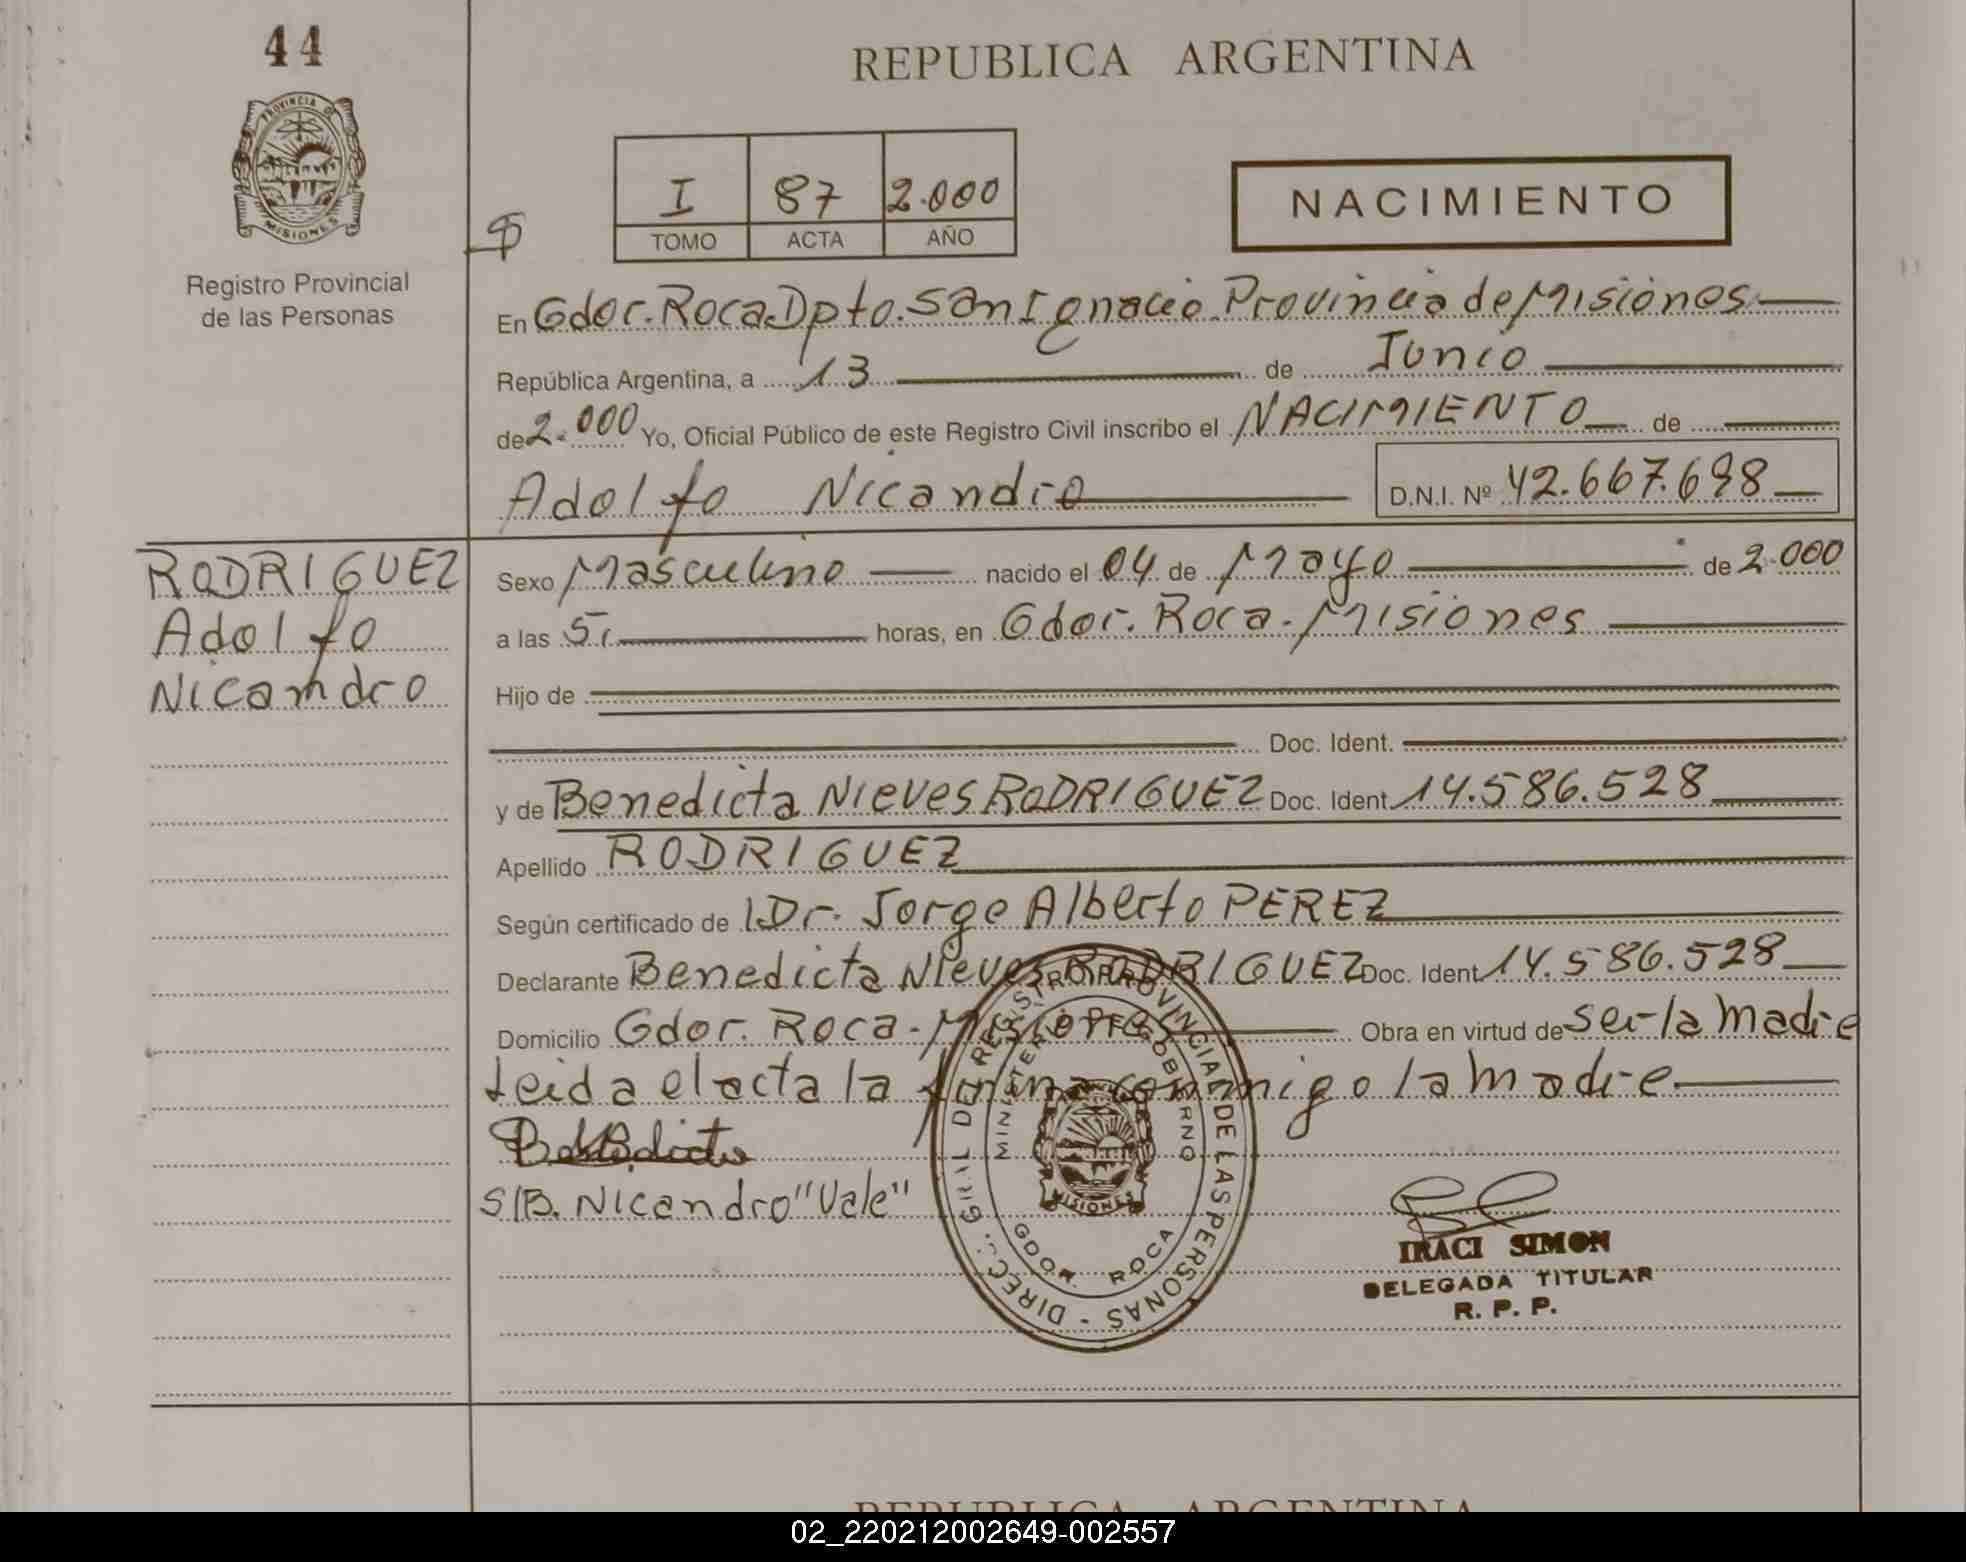 44
REPUBLICA ARGENTINA
PROVINCIA D
MISIONES
Registro Provincial
de las Personas
I 87 2.000
TOMO ACTA AÑO
NACIMIENTO
En Gdor. Roca Dpto. San Ignacio Provincia de Misiones
República Argentina, a 13 de Junio
de 2.000 Yo, Oficial Público de este Registro Civil inscribo el NACIMIENTO de
Adolfo Nicandro D.N.I. Nº 42.667.698
RODRIGUEZ
Adolfo
Nicandro
Sexo Masculino nacido el 04 de Mayo de 2.000
a las 5, horas, en Gdor. Roca - Misiones
Hijo de
Doc. Ident.
y de Benedicta Nieves RODRIGUEZ Doc. Ident 14.586.528
Apellido RODRIGUEZ
Según certificado de Dr. Jorge Alberto PEREZ
Declarante Benedicta Nieves RODRIGUEZ Doc. Ident 14.586.528
Domicilio Gdor. Roca - Misiones Obra en virtud de ser la madre
Leida el acta la firma conmigo la madre
S/B. Nicandro "Vale"
DIREC. GRAL DEL REGISTRO PROVINCIAL DE LAS PERSONAS -
MINISTERIO DE GOBIERNO
MISIONES
GDOR. ROCA
IRACI SIMON
DELEGADA TITULAR
R. P. P.
REPUBLICA ARGENTINA
02_220212002649-002557